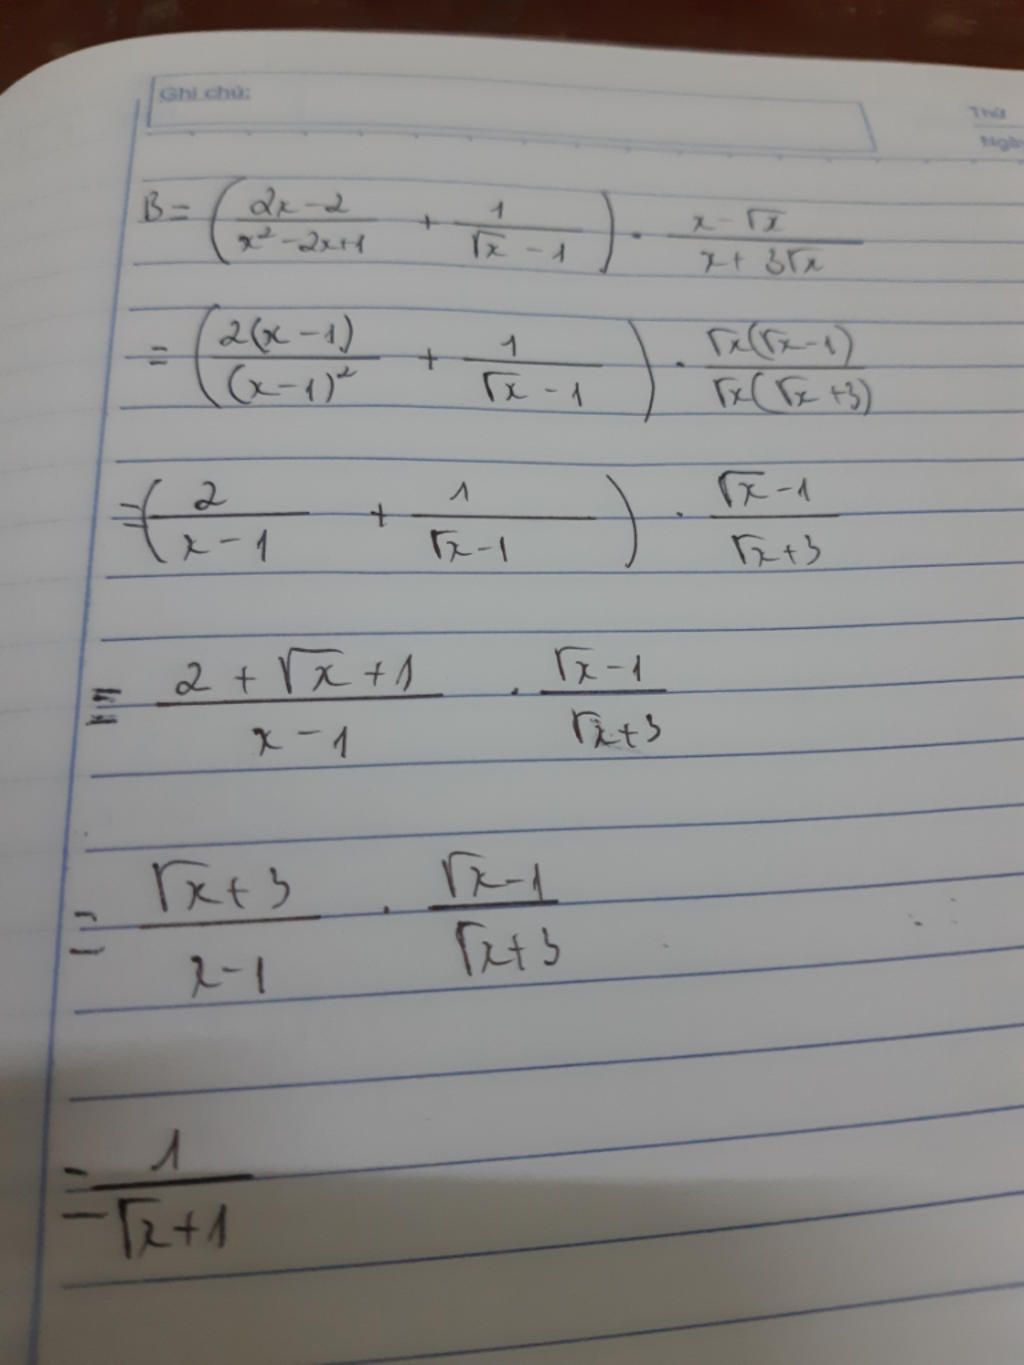 Ghi chú:
Thứ
Ngày
B = ( (2x - 2)/(x² - 2x + 1) + 1/(√x - 1) ) . (x - √x)/(x + 3√x)
= ( 2(x - 1)/(x - 1)² + 1/(√x - 1) ) . √x(√x - 1)/√x(√x + 3)
= ( 2/(x - 1) + 1/(√x - 1) ) . (√x - 1)/(√x + 3)
= (2 + √x + 1)/(x - 1) . (√x - 1)/(√x + 3)
= (√x + 3)/(x - 1) . (√x - 1)/(√x + 3)
= 1/(√x + 1)